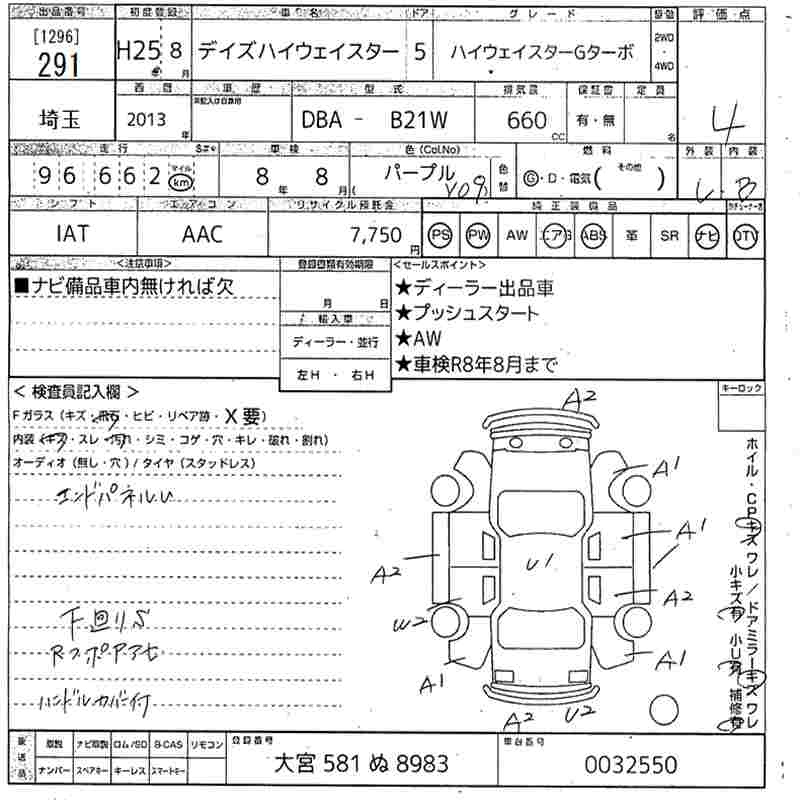 出品番号 初度登録 車名 ドア グレード 駆動 評価点
[1296]
291 H25 8月 デイズハイウェイスター 5 ハイウェイスターGターボ 2WD・4WD
西暦 車歴 型式 排気量 保証書 定員
埼玉 2013年 DBA - B21W 660CC 有・無 名 4
走行 車検 色(Col.No) 燃料 外装 内装
96,662 マイル km 8年 8月 パープル 色替 G・D・電気( その他 ) B
シフト エアコン リサイクル預託金 純正装備品
IAT AAC 7,750円 PS PW AW エアB ABS 革 SR ナビ TV
<注意事項> 登録書類有効期限 <セールスポイント>
■ナビ備品車内無ければ欠 月 日 ★ディーラー出品車
輸入車 ★プッシュスタート
ディーラー・並行 ★AW
左H・右H ★車検R8年8月まで
<検査員記入欄> キーロック
Fガラス(キズ・飛石・ヒビ・リペア跡・X要)
内装(キズ・スレ・汚れ・シミ・コゲ・穴・キレ・破れ・割れ)
オーディオ(無し・穴)/タイヤ(スタッドレス)
エンドパネルU
下回りS
RスポPアセ
ハンドルカバー付
A2
A1
A1
U1
A2
A2
W2
A1
A1
A2 U2
ホイル・CPキズワレ/ドアミラーキズワレ
小キズ有 小U有 補修有
後送品 取説 ナビ取説 ロム/SD B-CAS リモコン 登録番号 車台番号
ナンバー スペアキー キーレス スマートキー 大宮 581 ぬ 8983 0032550